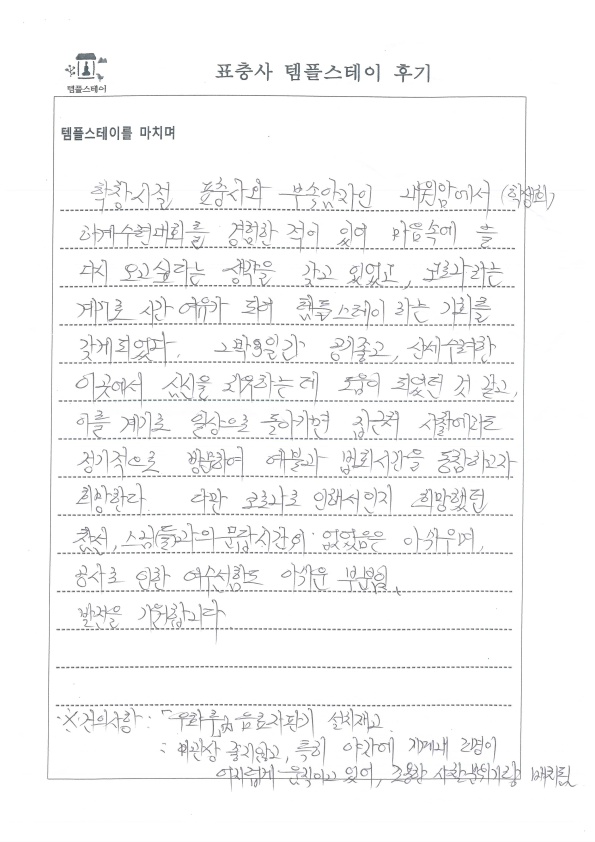 템플스테이
표충사 템플스테이 후기
템플스테이를 마치며
학창시절 표충사와 부속암자인 내원암에서 (학생회)
하계수련대회를 경험한 적이 있어 마음속에 늘
다시 오고싶다는 생각을 갖고 있었고, 코로나라는
계기로 시간 여유가 되어 템플스테이 라는 기회를
갖게되었다. 2박3일간 공기좋고, 산세수려한
이곳에서 심신을 치유하는데 도움이 되었던 것 같고,
이를 계기로 일상으로 돌아가면 집근처 사찰에라도
정기적으로 방문하여 예불과 법회시간을 동참하고자
희망한다. 다만 코로나로 인해서인지 희망했던
참선, 스님(들)과의 문답시간이 없었음은 아쉬우며,
공사로 인한 어수선함도 아쉬운 부분임.
발전을 기원합니다
※건의사항 : 「우화루」內 음료자판기 설치재고
: 미관상 좋지않고, 특히 야간에 기계내 조명이
어지럽게 움직이고 있어, 조용한 사찰분위기랑 배치됨